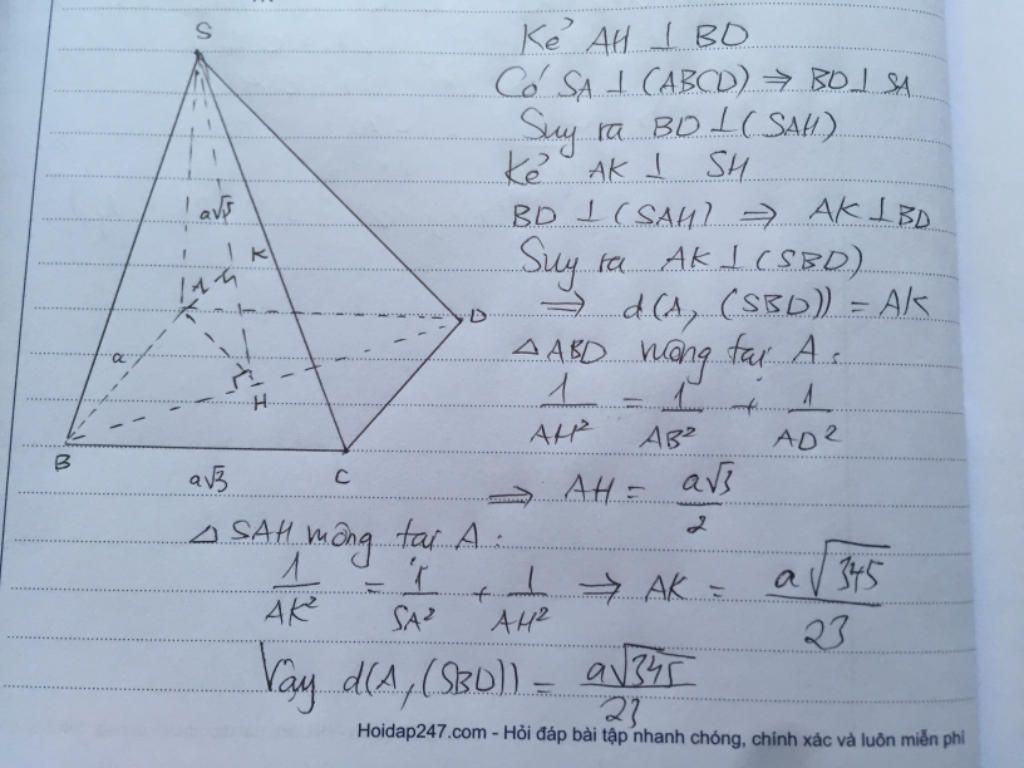 S
Kẻ AH ⊥ BD
Có SA ⊥ (ABCD) ⇒ BD ⊥ SA
Suy ra BD ⊥ (SAH)
Kẻ AK ⊥ SH
BD ⊥ (SAH) ⇒ AK ⊥ BD
Suy ra AK ⊥ (SBD)
⇒ d(A, (SBD)) = AK
△ABD vuông tại A:
1/AH² = 1/AB² + 1/AD²
⇒ AH = a√3/2
a√5
K
A
D
a
H
B
a√3
C
△SAH vuông tại A:
1/AK² = 1/SA² + 1/AH² ⇒ AK = a√345/23
Vậy d(A,(SBD)) = a√345/23
Hoidap247.com - Hỏi đáp bài tập nhanh chóng, chính xác và luôn miễn phí